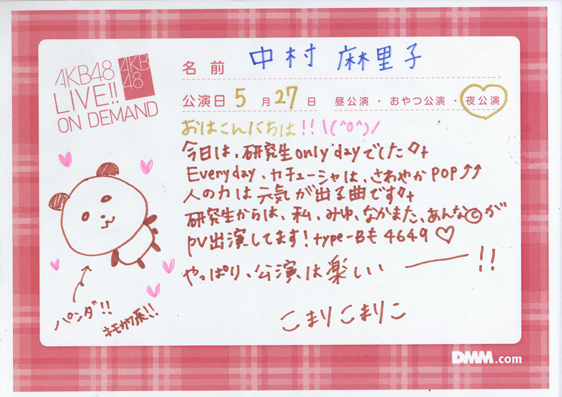 AKB48
LIVE!!
ON DEMAND
AKB
48
名前 中村 麻里子
公演日 5月27日 昼公演・おやつ公演・夜公演
おはこんにちは!!\(^o^)/
今日は、研究生only dayでした
Everyday、カチューシャは、さわやかPOP↑↑
人の力は元気が出る曲です
研究生からは、私、みゆ、なかまた、あんな©が
PV出演してます!type-Bも4649♡
やっぱり、公演は楽しい――!!
こまりこまりこ
パンダ!!
キモカワ系!!
DMM.com